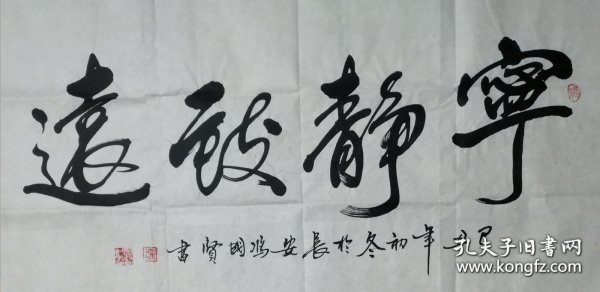 寧靜致遠
年初冬於長安馮國賢書
孔夫子旧书网
www.kongfz.com